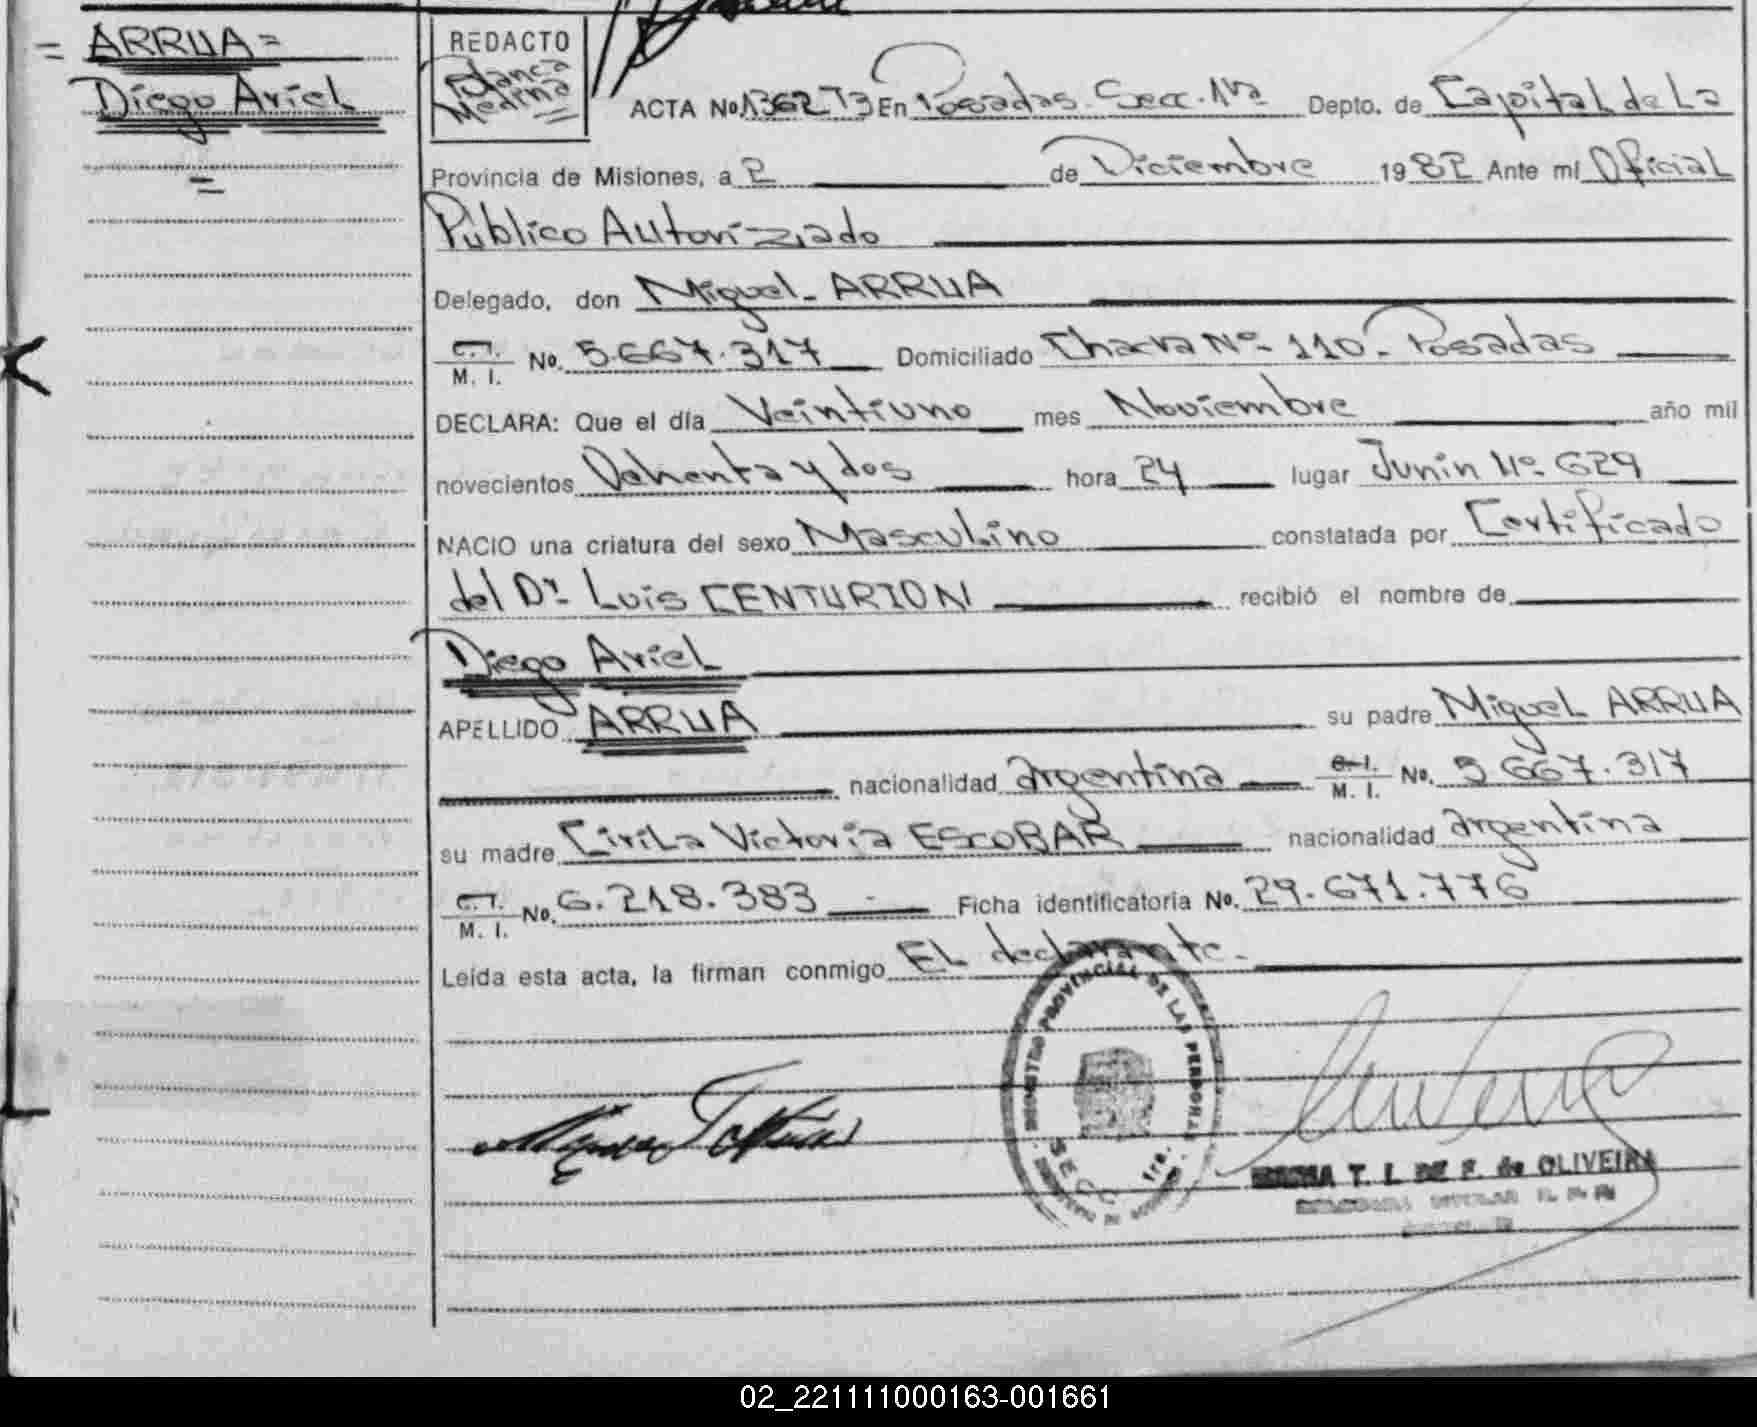 = ARRUA =
Diego Ariel
=
REDACTO
Blanca
Medina
ACTA No. 1362 T3 En Posadas. Secc. 1ra Depto. de Capital de La
Provincia de Misiones, a 2 de Diciembre 1982 Ante mi Oficial
Publico Autorizado
Delegado, don Miguel ARRUA
C.I. M. I. No. 5.667.317 Domiciliado Chacra Nº 110. Posadas
DECLARA: Que el día Veintiuno mes Noviembre año mil
novecientos Ochenta y dos hora 24 lugar Junin Nº 629
NACIO una criatura del sexo Masculino constatada por Certificado
del Dr. Luis CENTURION recibió el nombre de
Diego Ariel
APELLIDO ARRUA su padre Miguel ARRUA
nacionalidad argentina C.I. M. I. No. 5 667.317
su madre Cirila Victoria ESCOBAR nacionalidad argentina
C.I. M. I. No. 6.218.383 Ficha identificatoria No. 29.671.776
Leída esta acta, la firman conmigo El declarante.
REGISTRO PROVINCIAL DE LAS PERSONAS
SECC 1ra.
T. I. DE F. de OLIVEIRA
02_221111000163-001661